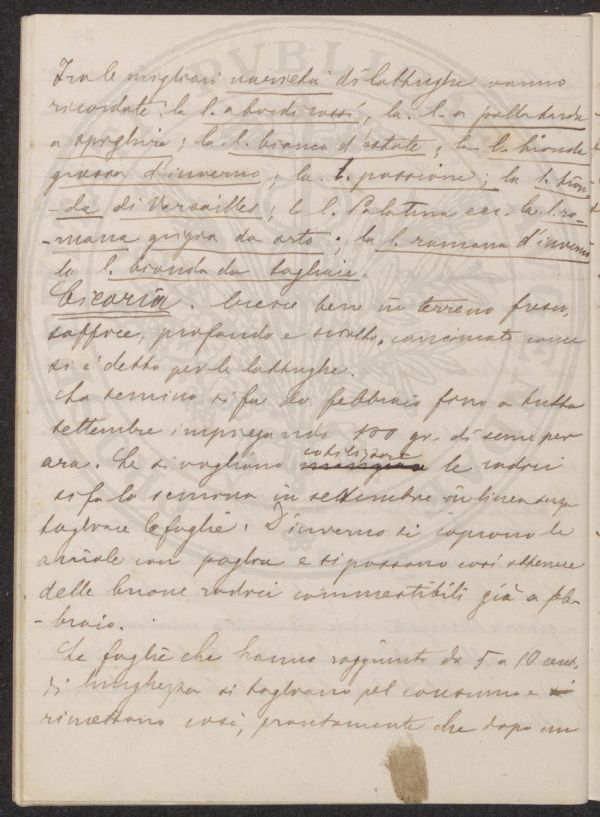 Tra le migliori varietà di lattughe vanno
ricordate: la l. a bordi rossi, la l. a palla tarda
a spighire; la l. bianca d'estate; la l. bionda
grossa d'inverno; la l. passione; la l. bion-
-da di Versailles; la l. Palatina ecc. la l. ro-
-mana grigia da orto; la l. romana d'inverno
la l. bionda da tagliare.
Cicoria. Cresce bene in terreno fresco,
soffice, profondo e sciolto, concimato come
si è detto per le lattughe.
La semina si fa da febbraio fino a tutto
settembre impiegando 100 gr. di seme per
ara. Se si vogliono utilizzare le radici
si fa la semina in settembre in linea senza
tagliare le foglie. D'inverno si coprono le
aiuole con paglia e si possono così ottenere
delle buone radici commestibili già a feb-
-braio.
Le foglie che hanno raggiunto da 5 a 10 cent.
di lunghezza si tagliano pel consumo e
rimettono così, prontamente che dopo un